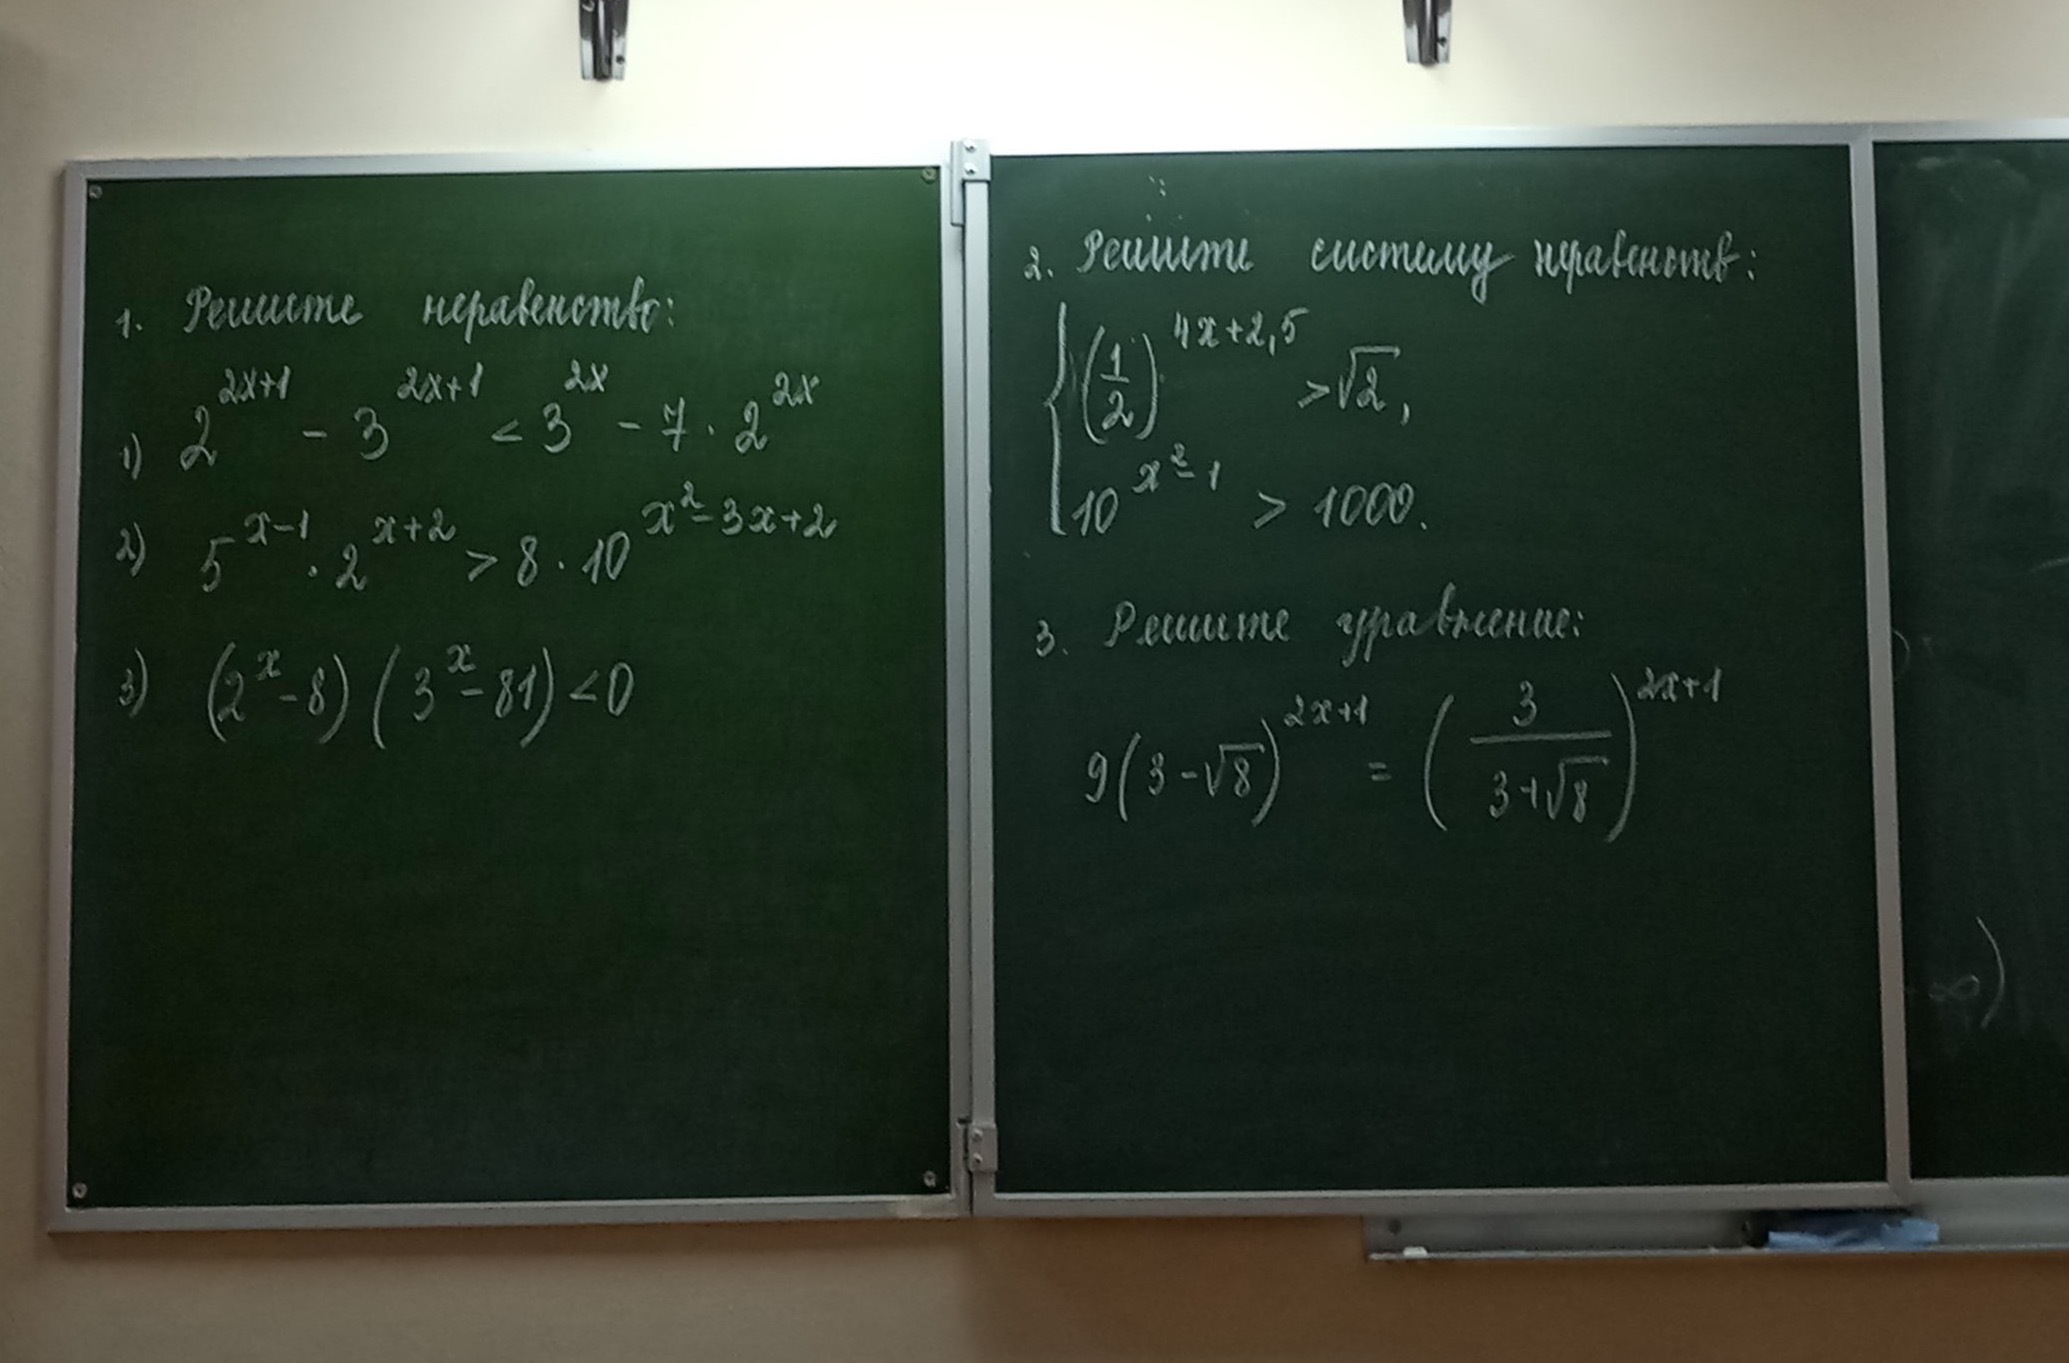 1. Решите неравенство:
1) 2^{2x+1} - 3^{2x+1} < 3^{2x} - 7 · 2^{2x}
2) 5^{x-1} · 2^{x+2} > 8 · 10^{x^2-3x+2}
3) (2^x - 8) (3^x - 81) < 0
2. Решите систему неравенств:
{ (1/2)^{4x+2,5} > √2,
10^{x^2-1} > 1000.
3. Решите уравнение:
9(3-√8)^{2x+1} = (3/(3+√8))^{2x+1}
∞)